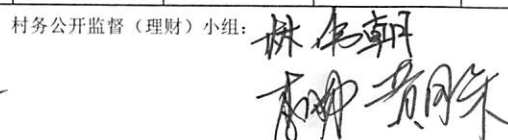 村务公开监督（理财）小组：林伟朝
黄月朱